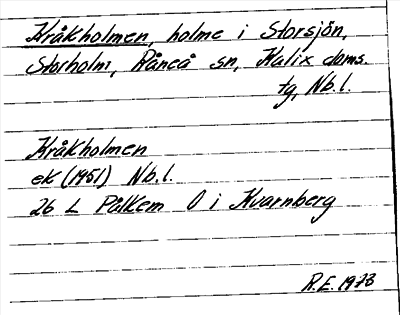 Kråkholmen, holme i Storsjön,
Storholm, Råneå sn, Kalix doms.
tg, Nb.l.
Kråkholmen
ek (1951) Nb.l.
26 L Pålkem O i Kvarnberg
R.E. 1973